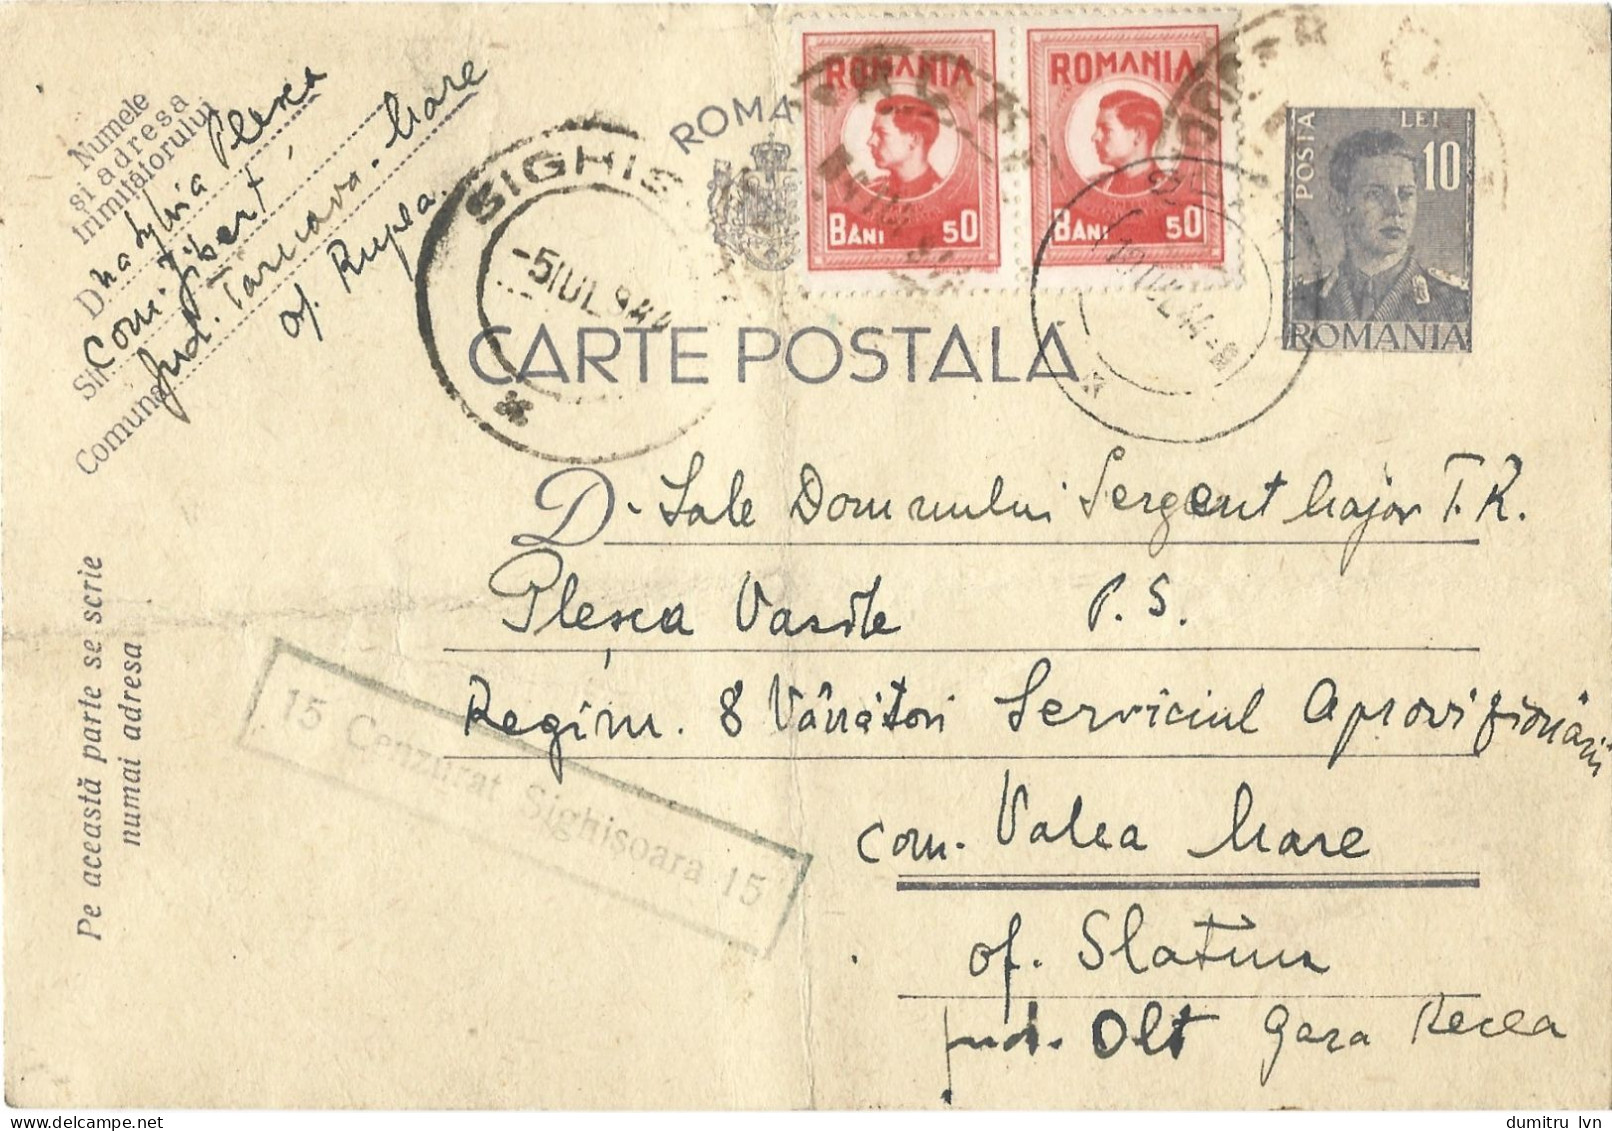 Numele
si adresa
trimițătorului
D na Sylvia Pleșca
Com. Jibert
Jud. Tarnava-Mare
of. Rupea.
Str.
Comuna
ROMA
ROMANIA
BANI 50
ROMANIA
BANI 50
POSTA
LEI
10
ROMANIA
SIGHIS
-5 IUL 944
19 IUL 44-8
CARTE POSTALA
D-Sale Domnului Sergent Major T.R.
Pleșca Vasile P.S.
Regim. 8 Vânători Serviciul Aprovizionării
com. Valea Mare
of. Slatina
jud. Olt gara Recea
Pe această parte se scrie
numai adresa
15 Cenzurat Sighisoara 15
dumitru lvn